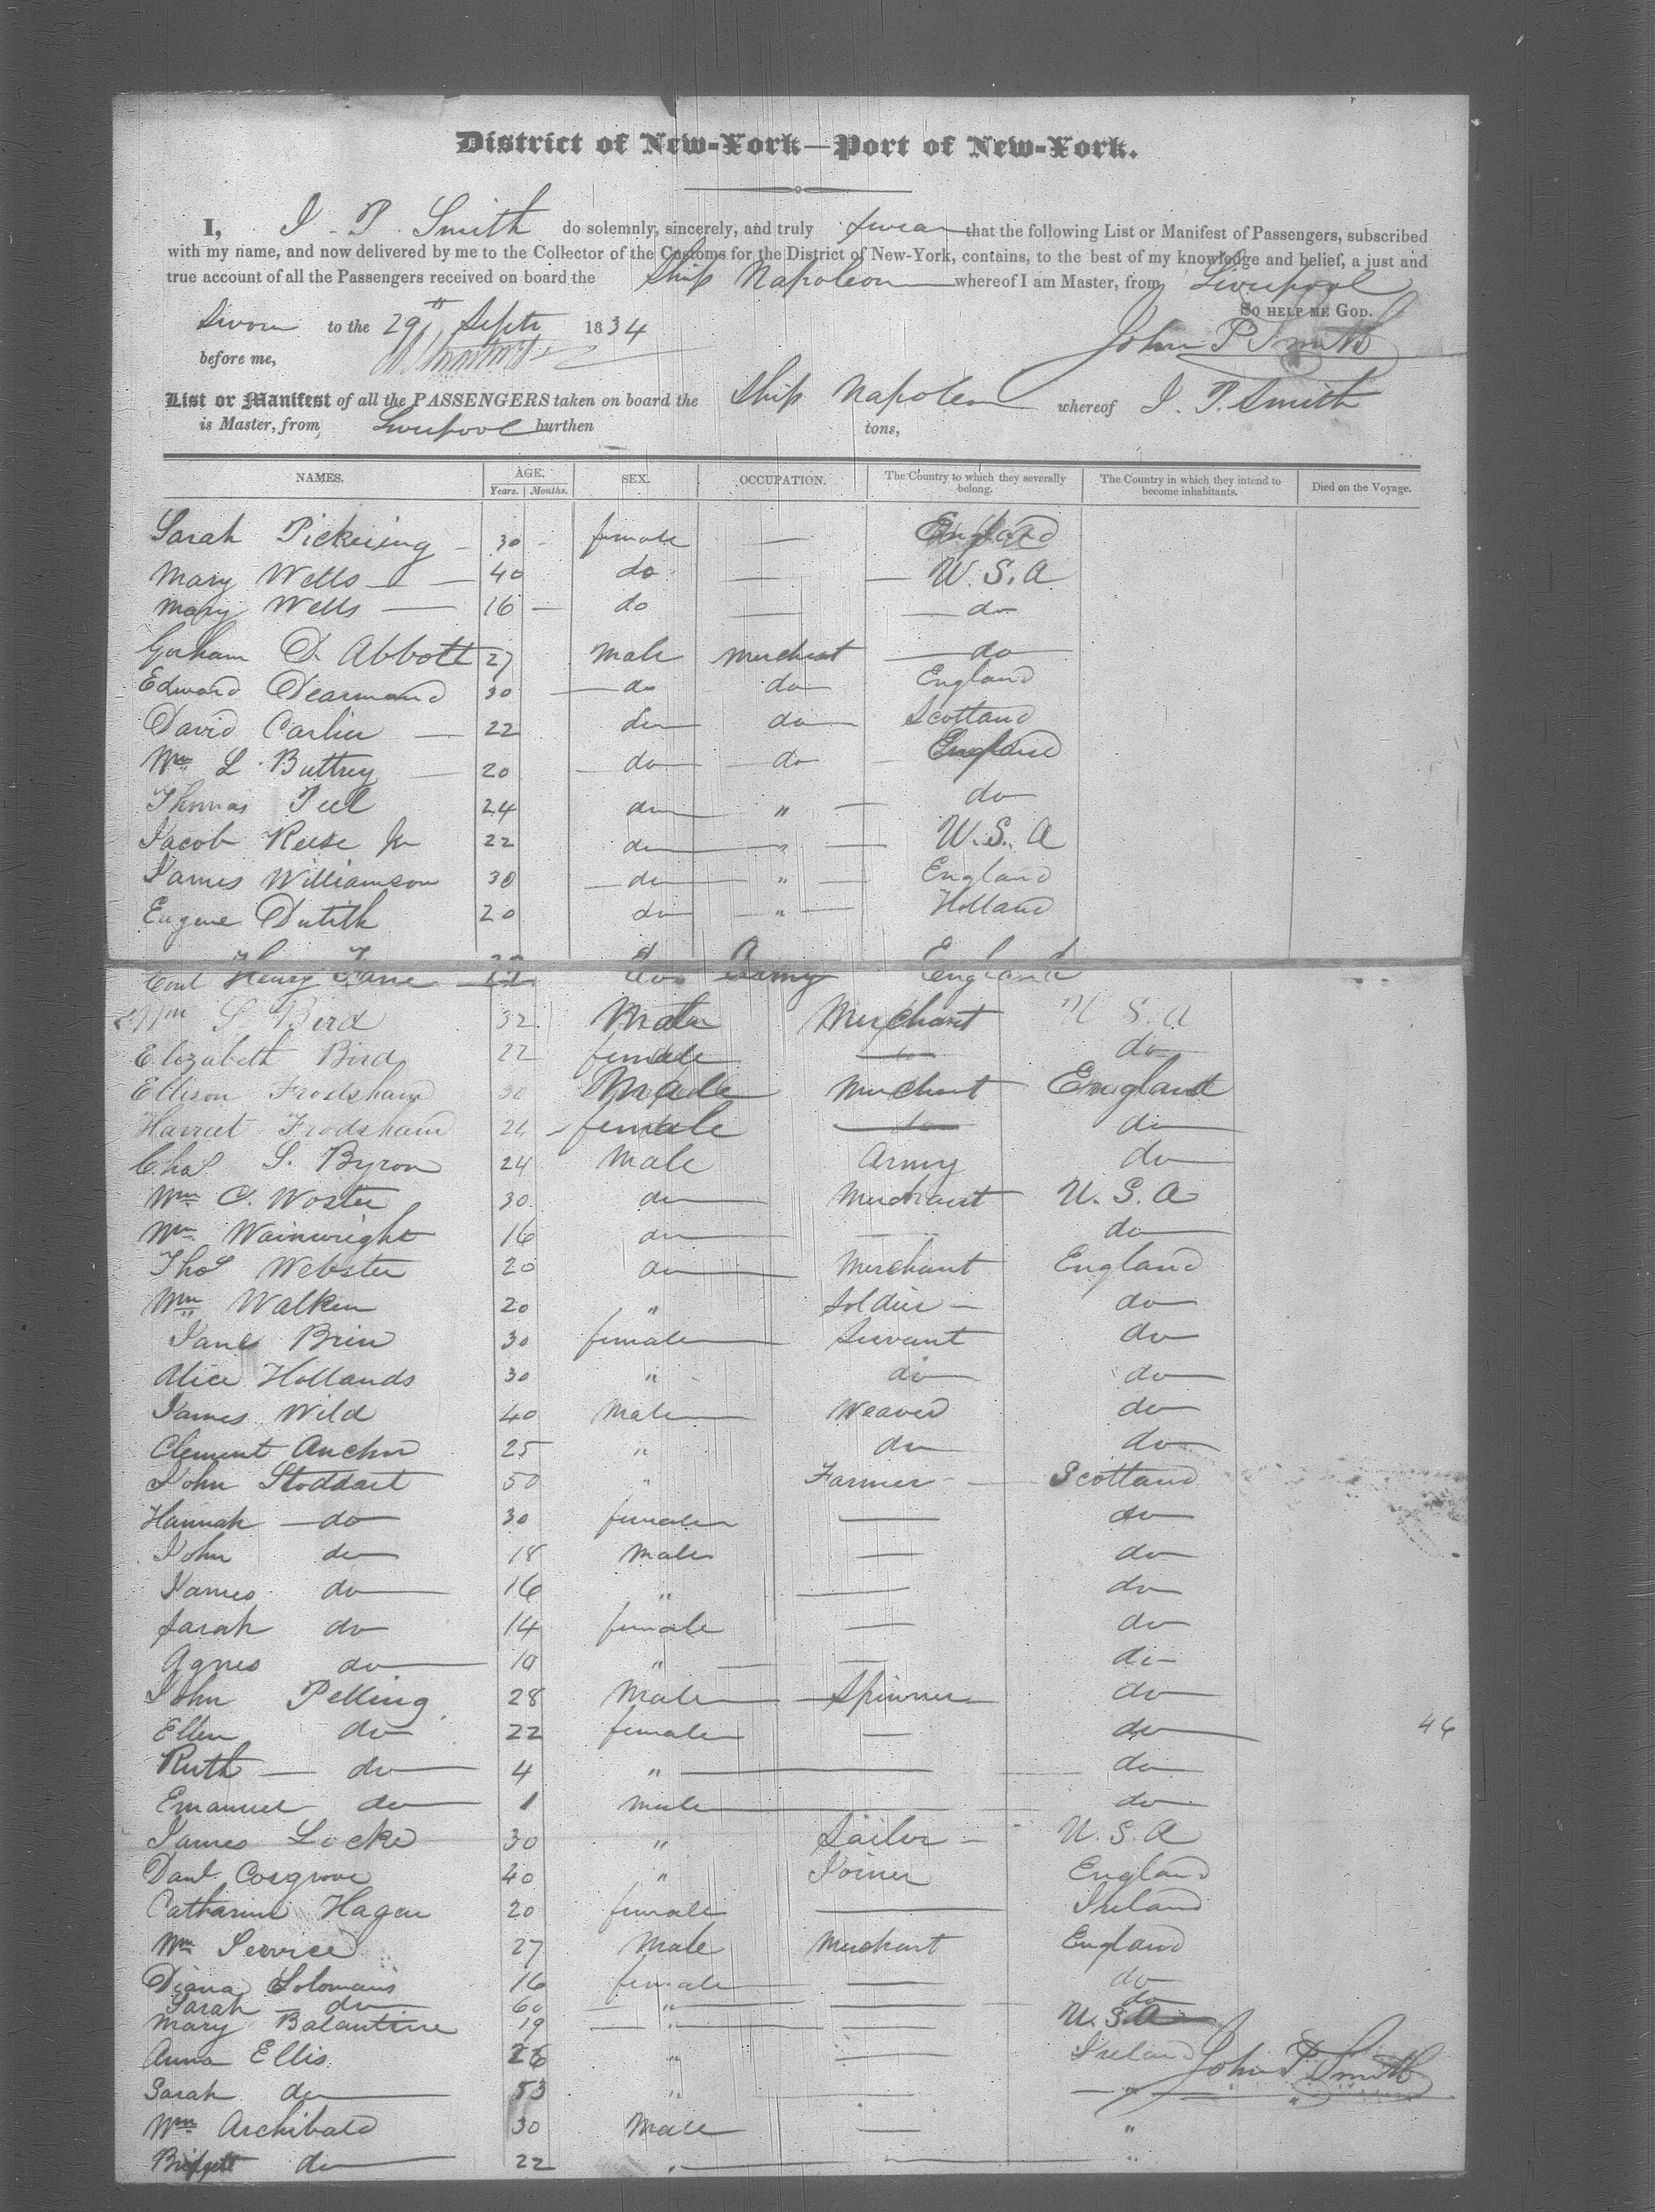 District of New-York—Port of New-York.
I, J. P. Smith do solemnly, sincerely, and truly swear that the following List or Manifest of Passengers, subscribed
with my name, and now delivered by me to the Collector of the Customs for the District of New-York, contains, to the best of my knowledge and belief, a just and
true account of all the Passengers received on board the Ship Napoleon whereof I am Master, from Liverpool
So help me God.
Sworn to the 29th Septr 1834
John P Smith
before me,
List or Manifest of all the PASSENGERS taken on board the Ship Napoleon whereof J. P. Smith
is Master, from Liverpool burthen tons,
NAMES. AGE. Years. Months. SEX. OCCUPATION. The Country to which they severally belong. The Country in which they intend to become inhabitants. Died on the Voyage.
Sarah Pickering — 30 - female — England
Mary Wells — 40 do — W. S. A
Mary Wells — 16 — do — do
Gorham D. Abbott 27 Male Merchant do
Edward Dearmand 30 do do England
David Carlier — 22 do do Scotland
Wm L Buttrey — 20 do do England
Thomas Peel 24 do " do
Jacob Reese Jr 22 do " U.S. A
James Williamson 30 do " England
Eugene Dutilh 20 do " Holland
Henry Fane do Army England
Wm S Bird 32 Male Merchant U S A
Elizabeth Bird 22 female do
Ellison Frodsham 30 Male Merchant England
Harriet Frodsham 26 female do
Chas S. Byron 24 Male Army do
Wm C. Woster 30 do Merchant U. S. A
Wm Wainwright 16 do — do
Thos Webster 20 do Merchant England
Wm Walken 20 " Soldier — do
Jane Brin 30 female Servant do
Alice Hollands 30 " do do
James Wild 40 Male Weaver do
Clement Anchor 25 " do do
John Stoddart 50 " Farmer Scotland
Hannah do 30 female — do
John do 18 Male — do
James do 16 " — do
Sarah do 14 female — do
Agnes do 10 " — do
John Pelling 28 Male Spinner do
Ellen do 22 female — do 46
Ruth — do 4 " — do
Emanuel do 1 Male — do
James Locke 30 " Sailor — U. S. A
Danl Cosgrove 40 " Joiner England
Catharine Hagan 20 female — Ireland
Wm Service 27 Male Merchant England
Diana Solomans 16 female — do
Sarah do 60 " — do
Mary Balantine 19 " — U. S. A
Anna Ellis 26 " — Ireland
John P Smith
Sarah do 53 " — "
Wm Archibald 30 Male — "
Bridgett do 22 " — "